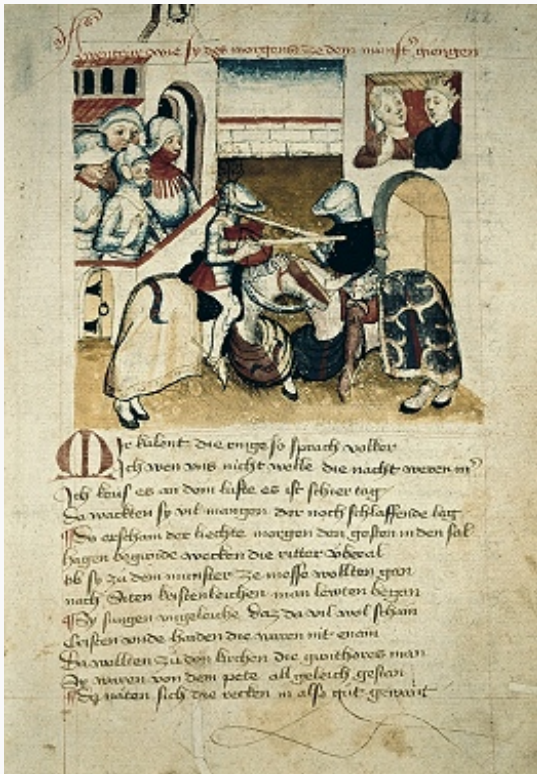 122
Aventeur wie sy des morgens ze dem münst' giengen
MIr kulent die ringe so sprach volker
Ich wen uns nicht welle die nacht weren m'
Ich keus es an dem lufte es ist schier tag
Da wackten sy vil mangen der noch schlaffende lag
Do erscham der liechte morgen den gesten in den sal
hagen begunde wecken die ritter überal
ob sy zu dem munster ze messe wollten gan
nach Siten kristenleichen man lewten began
Sy sungen ungeleiche daz da vil wol schain
cristen unde haiden die waren nit enain
Da wollten zu den kirchen die guntheres man
Sy waren von dem pete all geleich gestan
Do näten sich die recken in also gut gewant